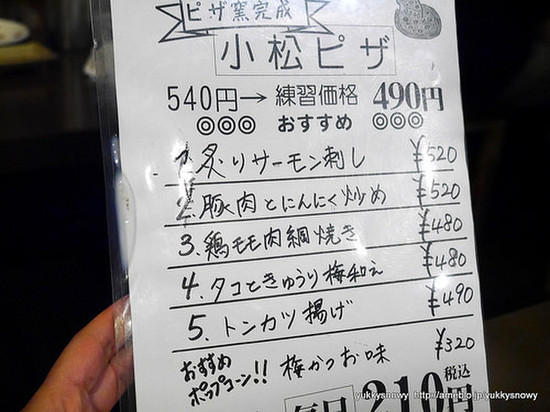 ピザ窯完成
小松ピザ
540円→練習価格 490円
◎◎◎ おすすめ ◎◎◎
1.炙りサーモン刺し ¥520
2.豚肉とにんにく炒め ¥520
3.鶏モモ肉網焼き ¥480
4.タコときゅうり梅和え ¥480
5.トンカツ揚げ ¥490
おすすめ
ポップコーン!! 梅かつお味 ¥320
毎日 310円 税込
yukkysnowy http://ameblo.jp/yukkysnowy